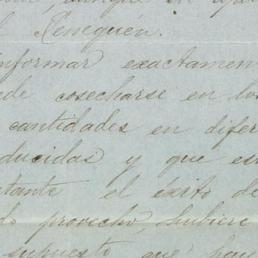 Jeneguén.
informar exactamen
de cosecharse en los
cantidades en difer
ducidas y que es
tante el éxito de
do provecho, hubiere
supuesto que hay